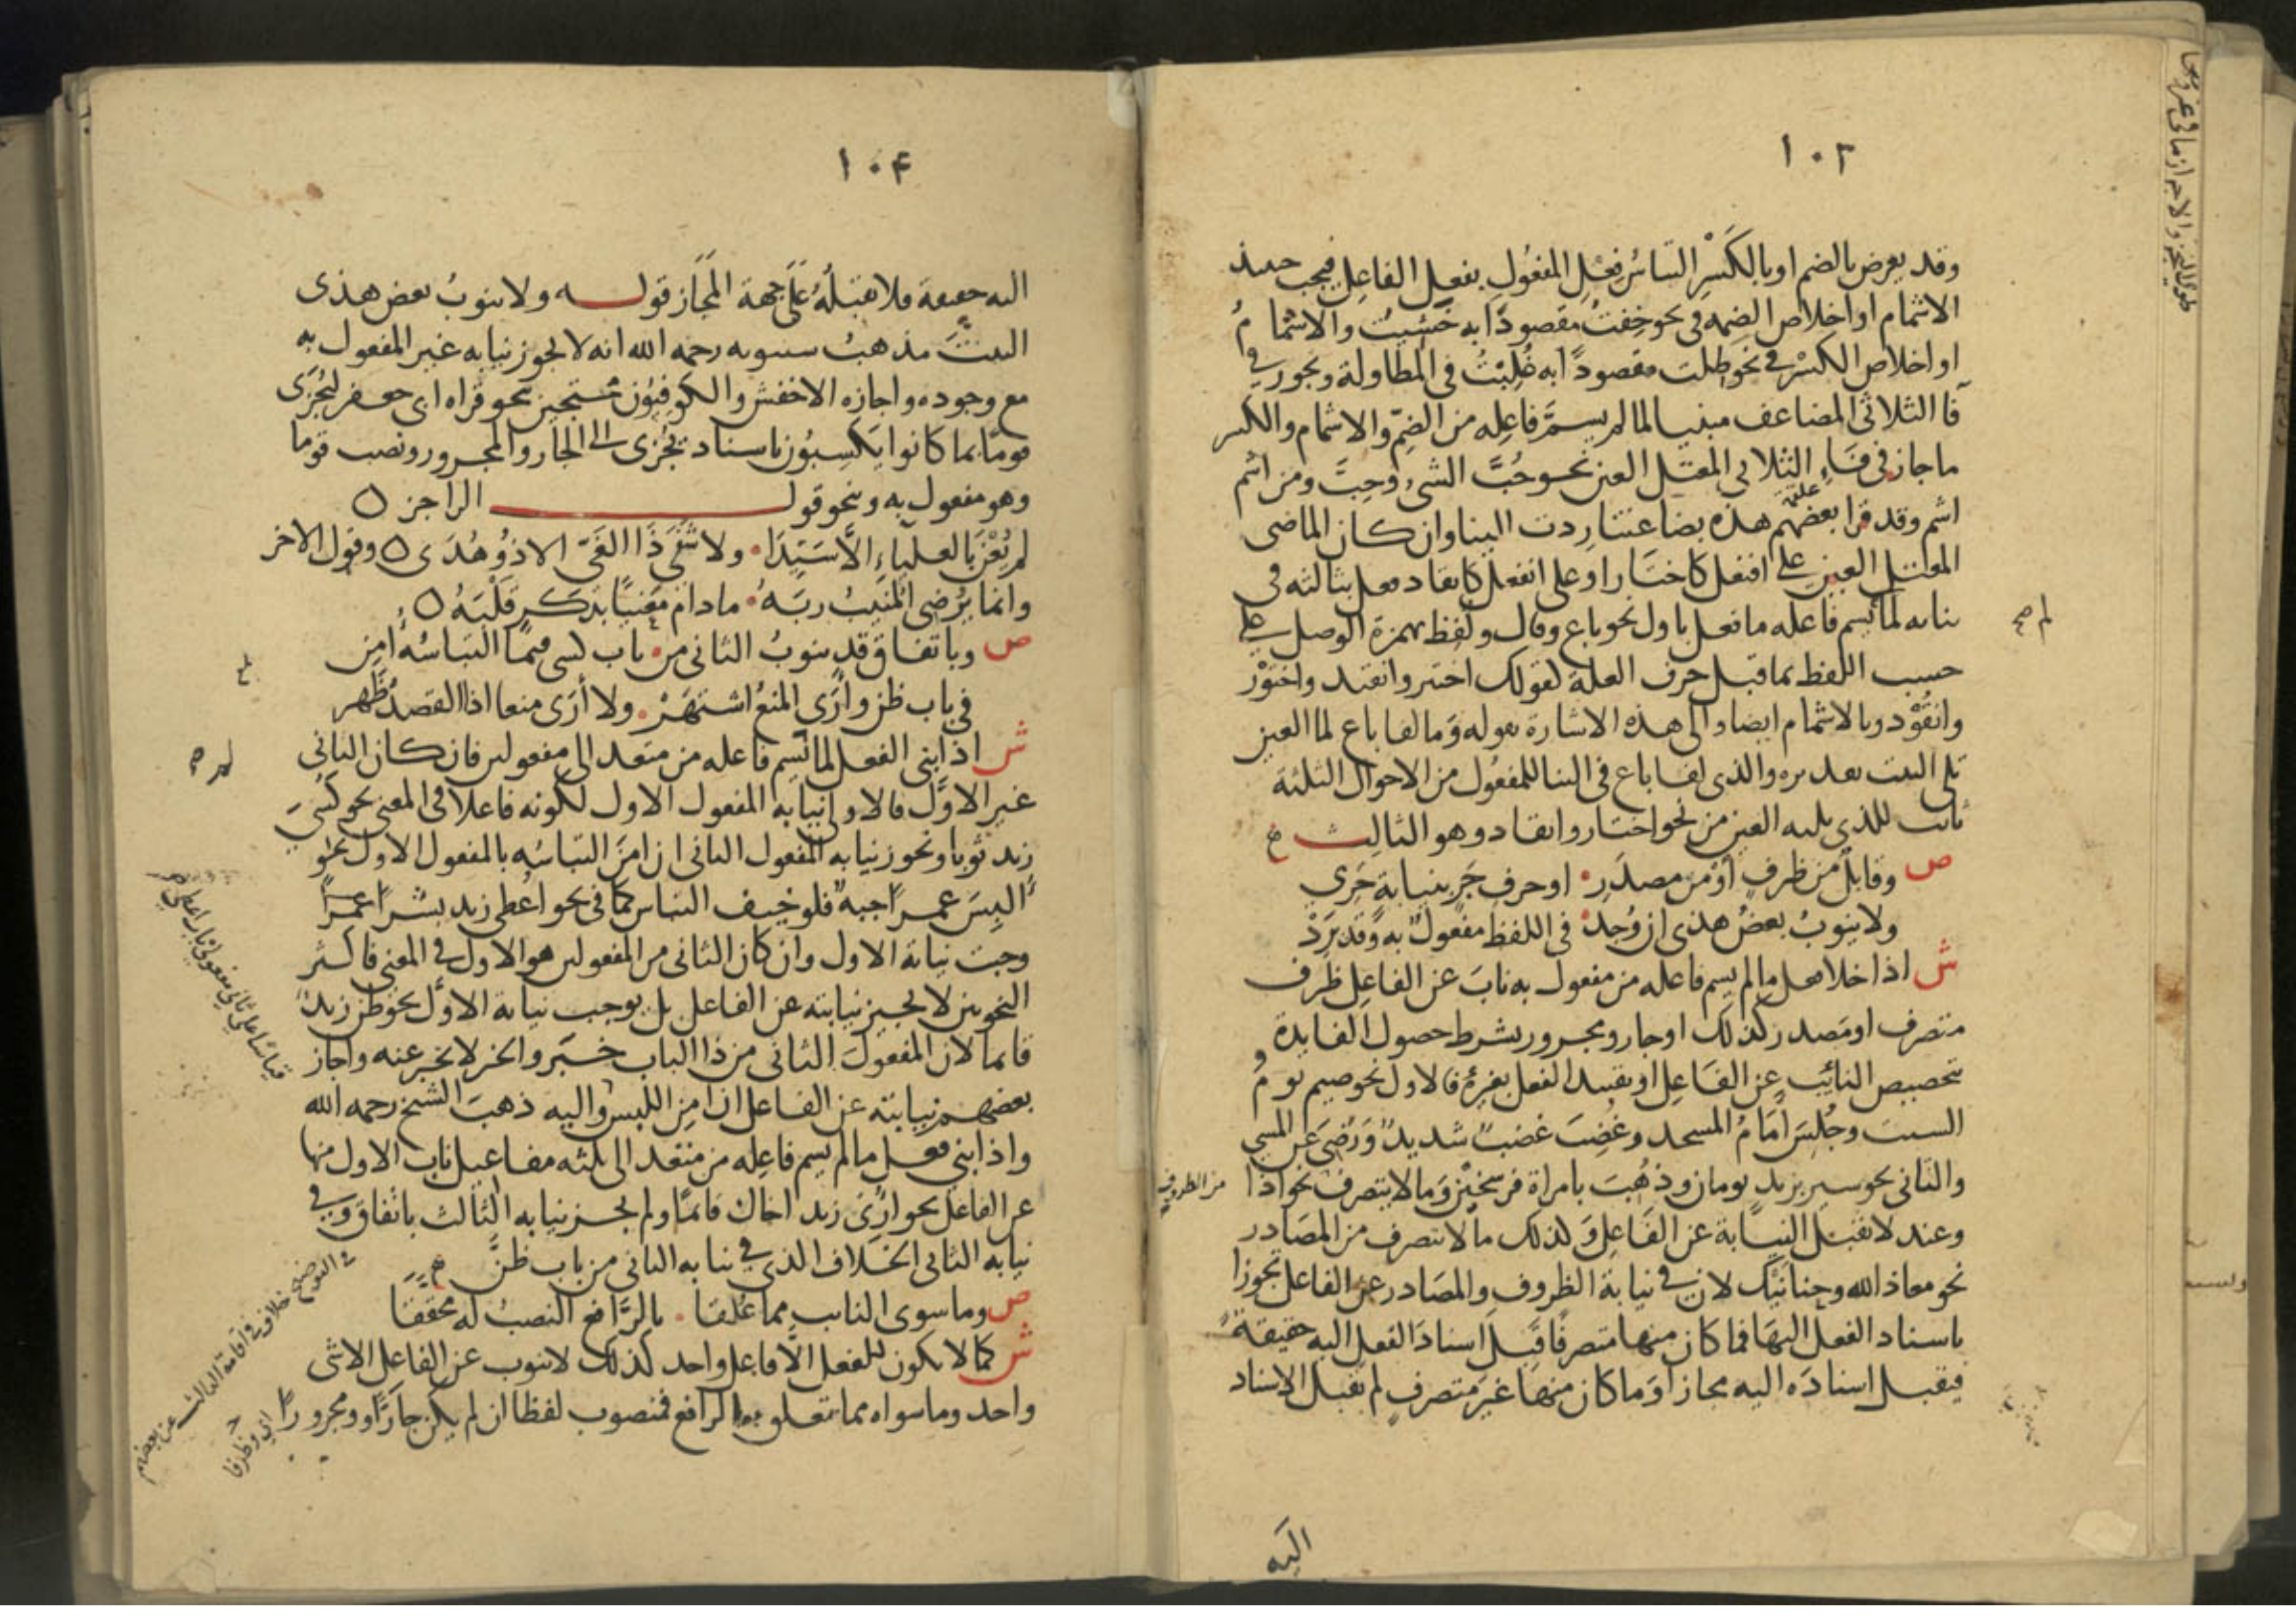 ١٠٣
وقد يعرض بالضم او بالكسر التباس فعل المفعول بفعل الفاعل فيجب حينئذ
الاشمام او اخلاص الضمه في نحو خفت مقصودا به خشيت والاشمام
او اخلاص الكسر في نحو طلت مقصودا به غلبت في المطاولة ويجوز في
فا الثلاثي المضاعف مبنيا لما لم يسم فاعله من الضم والاشمام والكسر
ما جاز في فاء الثلاثي المعتل العين نحو حب الشيء وحب ومن اشم
اشم وقد قرا بعضهم هذه بضاعتنا ردت الينا وان كان الماضي
علقمة
المعتل العين على افتعل كاختار او على انفعل كانقاد فعل بثالثه في
بنائه لما لم يسم فاعله ما فعل باول نحو باع وقال ولفظ بهمزة الوصل على
حسب اللفظ بما قبل حرف العلة كقولك اختير وانقيد واختور
وانقود وبالاشمام ايضا والى هذه الاشارة بقوله وما لفا باع لما العين
تلي البيت تقديره والذي لفا باع في البنا للمفعول من الاحوال الثلثة
ثابت للذي يليه العين من نحو اختار وانقاد وهو الثالث
ص وقابل من ظرف او من مصدر او حرف جر بنيابة حري
ولا ينوب بعض هذي ان وجد في اللفظ مفعول به وقد يرد
ش اذا خلا فعل ما لم يسم فاعله من مفعول به ناب عن الفاعل ظرف
متصرف او مصدر كذلك او جار ومجرور بشرط حصول الفايدة
بتخصيص النائب عن الفاعل او بتقييد الفعل بغيره فالاول نحو صيم يوم
السبت وجلس امام المسجد وغضب غضب شديد ورضي عن المسي
والثاني نحو سير بزيد يومان وذهب بامراة فرسخين وما لا يتصرف نحو اذا
من الظروف
وعند لا تقبل النيابة عن الفاعل وكذلك ما لا يتصرف من المصادر
نحو معاذ الله وحنانيك لان في نيابة الظروف والمصادر عن الفاعل تجوزا
باسناد الفعل اليها فما كان منها متصرفا قبل اسناد الفعل اليه حقيقة
فيقبل اسناده اليه مجازا وما كان منها غير متصرف لم يقبل الاسناد
اليه
١٠۴
اليه حقيقة فلا يقبله على جهة المجاز قوله ولا ينوب بعض هذي
البيت مذهب سيبويه رحمه الله انه لا يجوز نيابه غير المفعول به
مع وجوده واجازه الاخفش والكوفيون محتجين بنحو قراه ابي جعفر ليجزى
قوما بما كانوا يكسبون باسناد يجزى الى الجار والمجرور ونصب قوما
وهو مفعول به ونحو قول الراجز
لم يعن بالعلياء الا سيدا ولا شفى ذا الغي الا ذو هدى وقول الاخر
وانما يرضي المنيب ربه ما دام معنيا بذكر قلبه
ص وباتفاق قد ينوب الثاني من باب كسى فيما التباسه امن
في باب ظن وارى المنع اشتهر ولا أرى منعا اذا القصد ظهر
ش اذا بني الفعل لما لم يسم فاعله من متعد الى مفعولين فان كان الثاني
غير الاول فالاولى نيابه المفعول الاول لكونه فاعلا في المعنى نحو كسي
زيد ثوبا ويجوز نيابه المفعول الثاني ان امن التباسه بالمفعول الاول نحو
البس عمرا جبة فلو خيف التباس كما في نحو اعطي زيد بشرا عمرا
وجبت نيابة الاول وان كان الثاني من المفعولين هو الاول في المعنى فاكثر
النحويين لا يجيز نيابته عن الفاعل بل يوجب نيابة الاول نحو ظن زيد
قائما لان المفعول الثاني من ذا الباب خبر والخبر لا يخبر عنه واجاز
بعضهم نيابته عن الفاعل ان امن اللبس واليه ذهب الشيخ رحمه الله
واذا بني فعل ما لم يسم فاعله من متعد الى ثلثه مفاعيل ناب الاول منها
عن الفاعل نحو ارى زيد اخاك قائما ولم يجز نيابه الثالث باتفاق وفي
نيابه الثاني الخلاف الذي في نيابه الثاني من باب ظن
ص وما سوى النايب مما علقا بالرافع النصب له محققا
ش كما لا يكون للفعل الا فاعل واحد كذلك لا ينوب عن الفاعل الا شي
واحد وما سواه مما تعلق بالرافع فمنصوب لفظا ان لم يكن جارا ومجرورا
قياسا على ثاني مفعولي باب اعطى
اي وظرفا